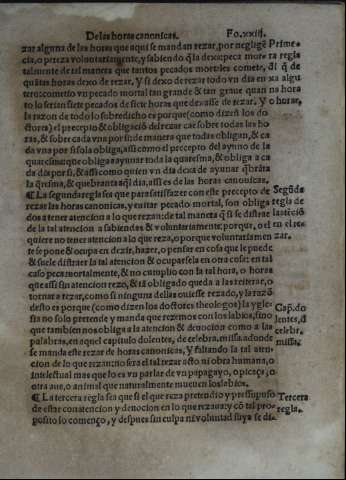 De las horas canonicas. Fo.xxiij.
zar alguna de las horas que aqui se mandan rezar, por negligẽ
cia, o pereza voluntariamente, y sabiendo q̃ la dexa: peca mor
talmente de tal manera que tantos pecados mortales comete, d̃
quãtas horas dexo. Y si dexo de rezar todo vn dia en
tero: cometio vn pecado mortal tan grande & tan graue quan
to lo serian siete pecados de siete horas que dexasse de rezar. Y
la razon de todo lo susodicho es porque (como dizen los do
ctores) el precepto & obligaciõ del rezar cae sobre todas las ho
ras, & sobre cada vna por si: de manera que todas obligan, & ca
da vna por si sola obliga, assi como el precepto del ayuno de la
quaresma: que obliga a ayunar toda la quaresma, & obliga a ca
da dia por si, & assi como quien vn dia dexa de ayunar q̃brãta
la q̃resma, & quebranta aq̃l dia, assi es de las horas canonicas.
¶ La segunda regla es que para satisfazer con este precepto de
rezar las horas canonicas, y euitar pecado mortal, son obliga
dos a tener atencion a lo que rezan: de tal manera q̃ si se distrae
de la tal atencion a sabiendas & voluntariamente: porque, o
quiere no tener atencion a lo que reza, o porque voluntariamen
te se pone & ocupa en dezir, hazer, o pensar en cosa que le puede
& suele distraer la tal atencion & ocuparsela en otra cosa: en tal
caso peca mortalmente, & no cumplio con la tal hora, o horas
que assi sin atencion rezo, & es tã obligado queda a las reiterar, o
tornar a rezar, como si ninguna dellas ouiesse rezado, y la razõ
desto es porque (como dizen los doctores theologos) la ygle
sia no solo pretende y manda que rezemos con los labios, sino
que tambien nos obliga a la atencion & deuocion como a las
palabras, en aquel capitulo dolentes, de celebra. missa. adonde
se manda este rezar de horas canonicas, Y faltando la tal aten
cion de lo que rezan: no sera el tal rezar acto ni obra humana, o
intelectual mas que lo es vn parlar de vn papagayo, o picaça, o
otra aue, o animal que naturalmente mueuen los labios.
¶ La tercera regla sea que si el que reza pretendio y presupuso
de estar con atencion y deuocion en lo que rezaua: y cõ tal pro
posito lo començo, y despues sin culpa ni voluntad suya se di
Prime
ra regla
horar,
Segũda
regla de
la atẽciõ
en el re
zar.
Cap. do
lentes, d̃
celebr.
missa.
Tercera
regla.